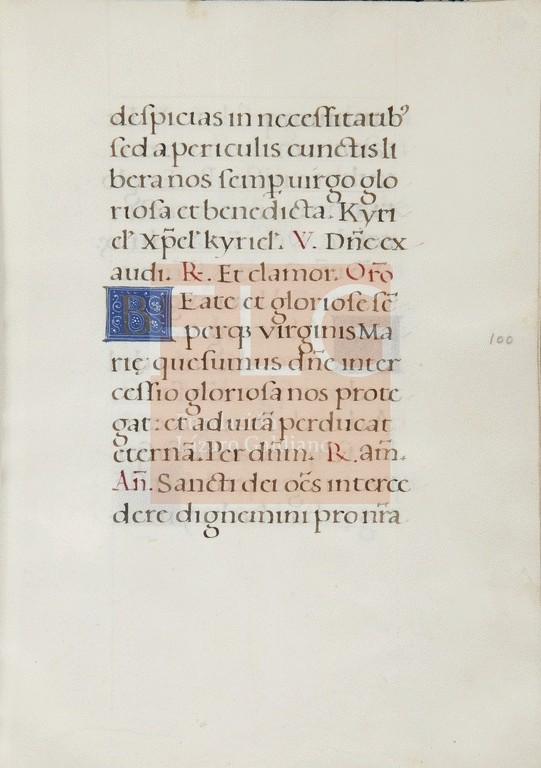 deſpicias in neceſſitatibꝰ
ſed a periculis cunctis li
bera nos ſemp̲ uirgo glo
rioſa et benedicta. Kyri
el'. xp̄el'. kyriel'. V. Dn̄e ex
audi. R. Et clamor. Or̄o
BEate et glorioſe ſē
perq3 virginis Ma
rię queſumus dn̄e inter
ceſſio glorioſa nos prote
gat: et ad uitā perducat
eternā. Per dnm̄. R. am̄.
An̄. Sancti dei oēs interce
dere dignemini pro nr̄a
100
FLG
Lázaro Galdiano